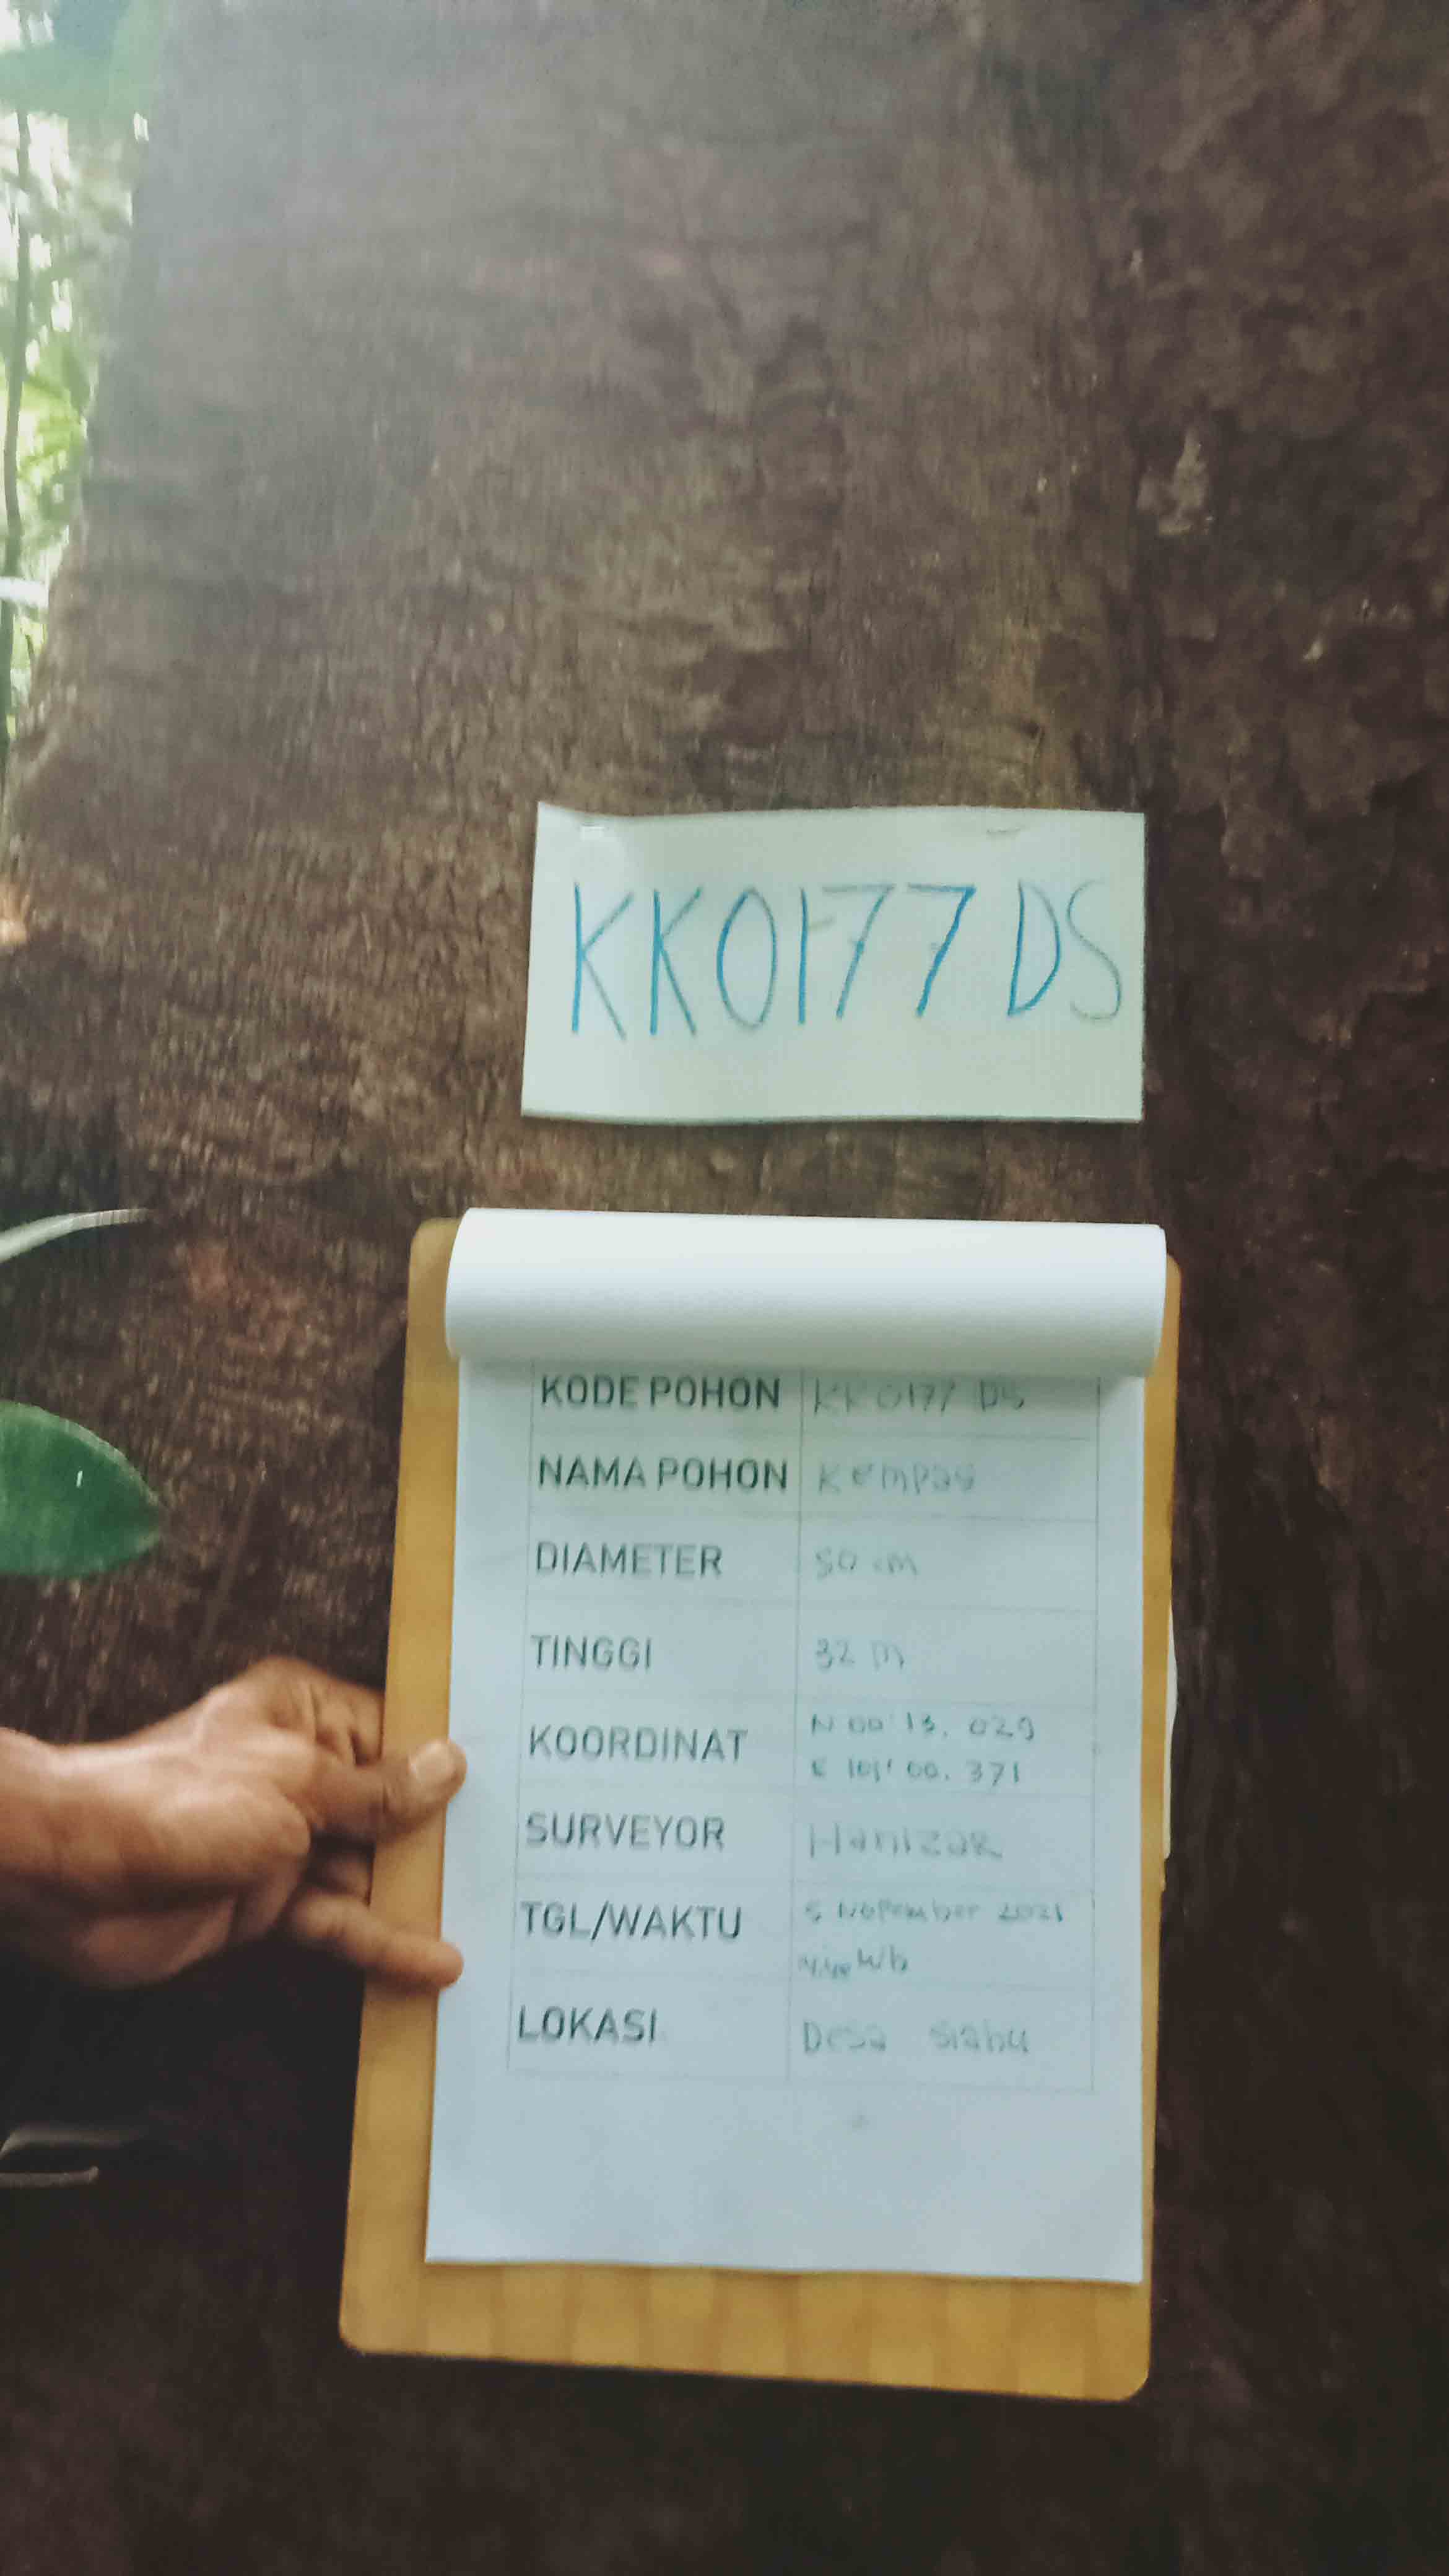 KK0177 DS
KODE POHON KK0177 DS
NAMA POHON Kempas
DIAMETER 50 cm
TINGGI 32 m
KOORDINAT N 00' 13. 029
E 101' 00. 371
SURVEYOR Hanizar
TGL/WAKTU 5 Nopember 2021
Wib
LOKASI Desa siabu